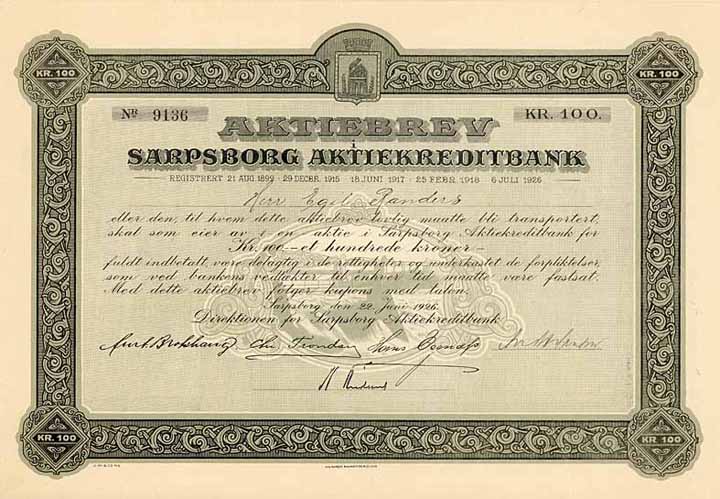 KR. 100
KR. 100
Nr 9136
KR. 100.
AKTIEBREV
i
SARPSBORG AKTIEKREDITBANK
REGISTRERT 21 AUG. 1899 - 29 DECBR. 1915 18 JUNI 1917 - 25 FEBR. 1918 6 JULI 1926
Herr Egil Randers
eller den, til hvem dette aktiebrev lovlig maatte bli transportert,
skal som eier av i en aktie i Sarpsborg Aktiekreditbank for
Kr. 100 — et hundrede kroner —
fuldt indbetalt, være delagtig i de rettigheter og underkastet de forpliktelser,
som ved bankens vedtækter til enhver tid maatte være fastsat.
Med dette aktiebrev følger kupons med talon.
Sarpsborg den 22. Juni 1926.
Direktionen for Sarpsborg Aktiekreditbank
KR. 100
KR. 100